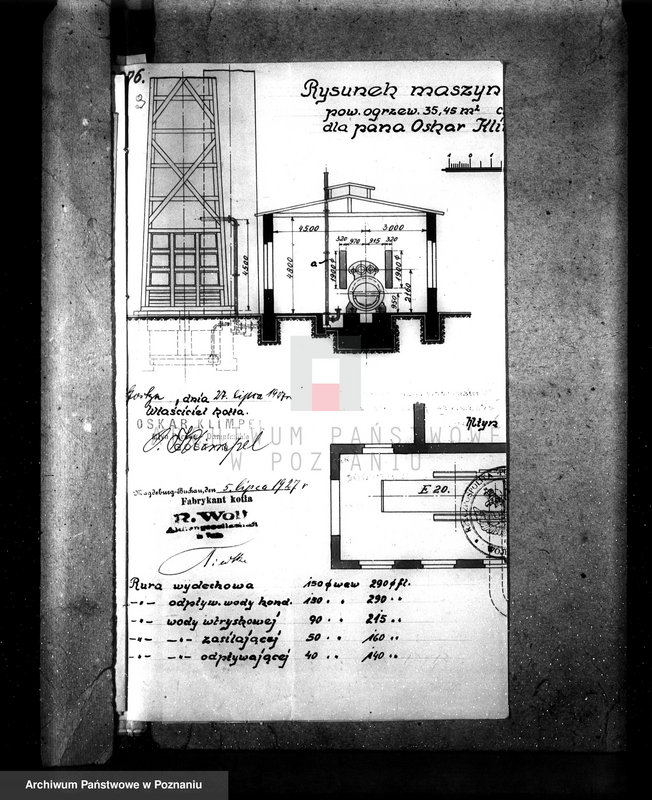 06.
3
Rysunek maszyn
pow. ogrzew. 35,45 m²
dla pana Oskar Kli
1 0 1
4500 3000
320 970 915 320
1900 ¢
a
4500
4800
1900 ¢
2160
950
, dnia 27. lipca 1927r
Właściciel kotła.
OSKAR KLIMPEL
Młyn
ARCHIWUM PAŃSTWOWE
W POZNANIU
E 20.
Magdeburg-Buckau, den 5 lipca 1927 r
Fabrykant kotła
R. Wolf
Aktiengesellschaft
Rura wydechowa 150 ¢ wew 290 ¢ fl.
-„- odpływ. wody kond. 130 „ „ 290 „
-„- wody wtryskowej 90 „ „ 215 „
-„- -„- zasilającej 50 „ „ 160 „
-„- -„- odpływającej 40 „ „ 140 „
Archiwum Państwowe w Poznaniu